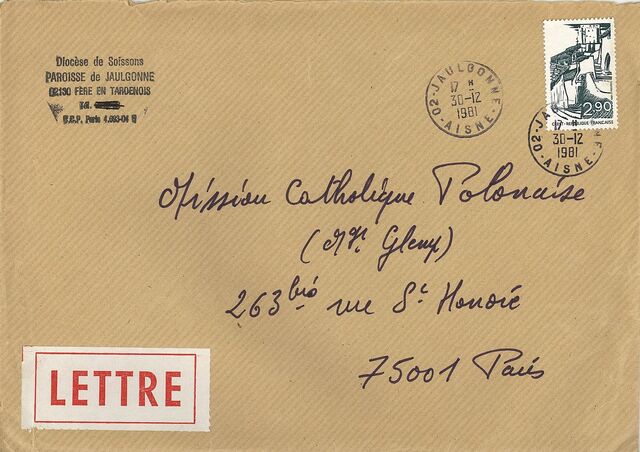 Diocèse de Soissons
PAROISSE de JAULGONNE
02130 FÈRE EN TARDENOIS
Tél.
C.C.P. Paris 4.693-04
02-JAULGONNE-AISNE-
17 H
30-12
1981
2,90
RÉPUBLIQUE FRANÇAISE
02-JAULGONNE-AISNE-
17 H
30-12
1981
Mission Catholique Polonaise
(Mgr Glemp)
263 bis rue St Honoré
75001 Paris
LETTRE